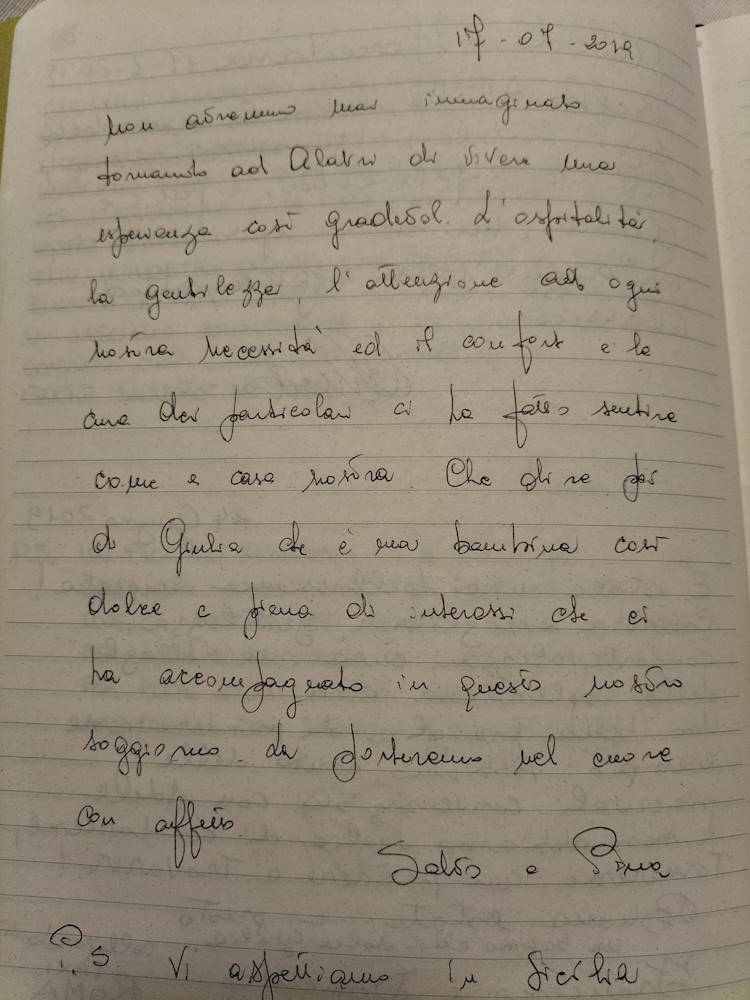 17-07-2019
Non avremmo mai immaginato
tornando ad Alatri di vivere una
esperienza così gradevol. L'ospitalità,
la gentilezza, l'attenzione ad ogni
nostra necessità ed il comfort e la
cura dei particolari ci ha fatto sentire
come a casa nostra. Che dire poi
di Giulia che è una bambina così
dolce e piena di interessi che ci
ha accompagnato in questo nostro
soggiorno. La porteremo nel cuore
con affetto.
Salvo e Pina
P.S. Vi aspettiamo in Sicilia